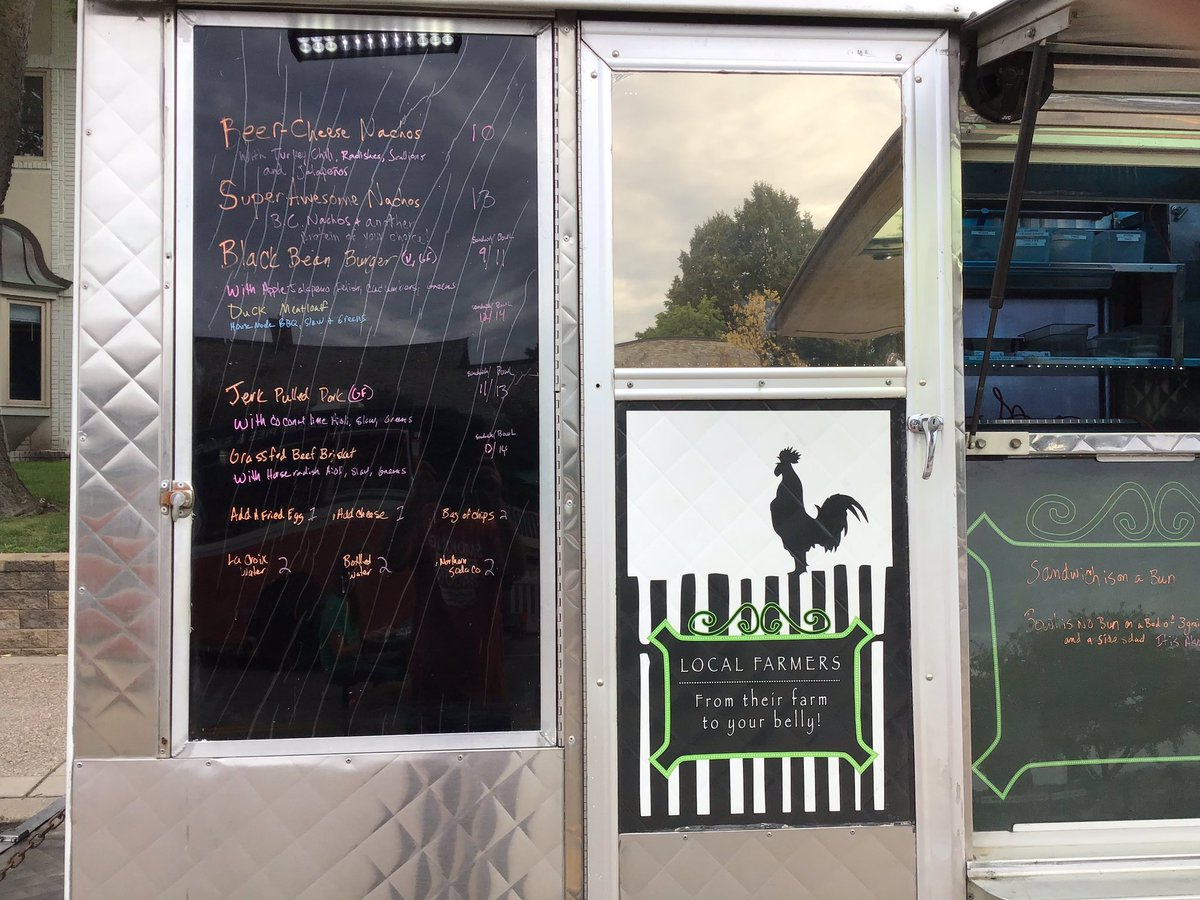 Beer-Cheese Nachos 10
With Turkey Chili, Radishes, Scallions
and Jalapeños
Super Awesome Nachos 13
B.C. Nachos + another
Protein of your choice!
Black Bean Burger (V, GF) Sandwich/Bowl 9/11
With Apple Jalapeno Relish, Cucumbers, Greens
Duck Meatloaf Sandwich/Bowl 12/14
House Made BBQ, Slaw + Greens
Jerk Pulled Pork (GF) Sandwich/Bowl 11/13
With Coconut lime Aioli, Slaw, Greens
Grassfed Beef Brisket Sandwich/Bowl /14
With Horseradish Aioli, Slaw, Greens
Add A Fried Egg 1 Add Cheese 1 Bag of chips 2
La Croix Water 2
Bottled Water 2
Northern Soda Co 2
LOCAL FARMERS
From their farm
to your belly!
Sandwich is on a Bun
Bowl is No Bun on a Bed of 3 grai
and a side salad It is Also